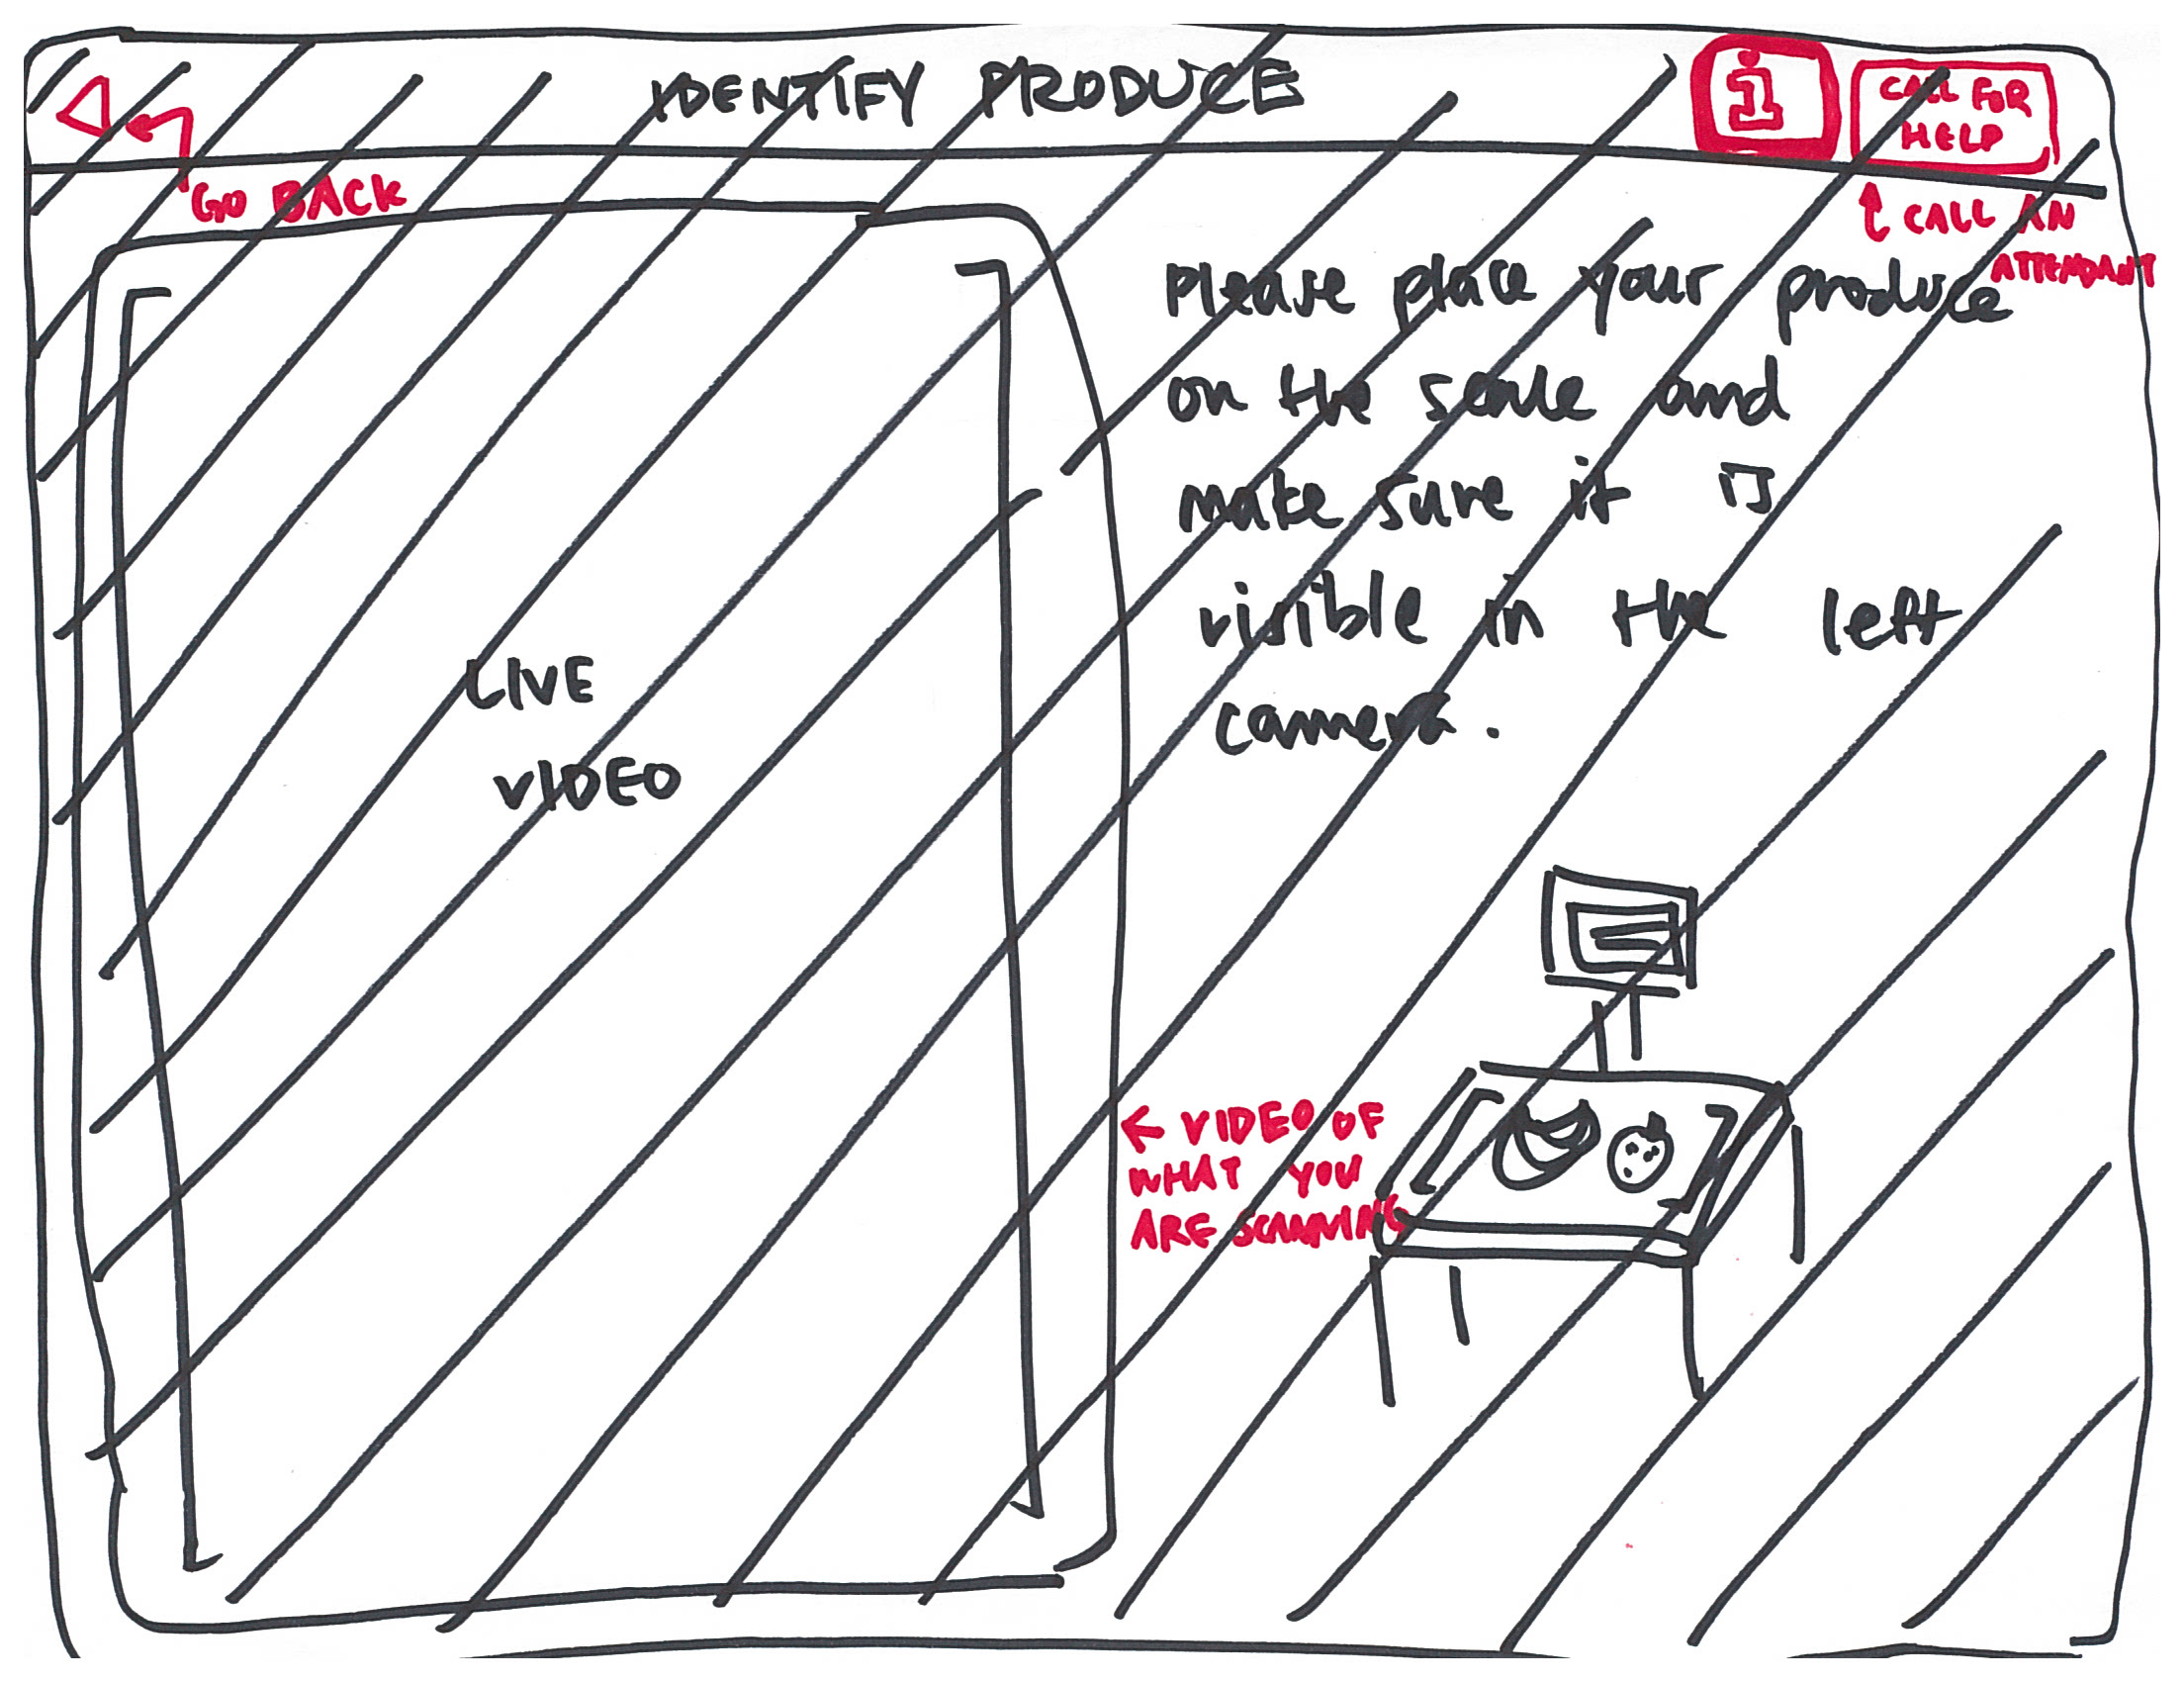 IDENTIFY PRODUCE
i
CALL FOR
HELP
GO BACK
CALL AN
ATTENDANT
Please place your produce
on the scale and
make sure it is
visible in the left
camera.
LIVE
VIDEO
← VIDEO OF
WHAT YOU
ARE SCANNING